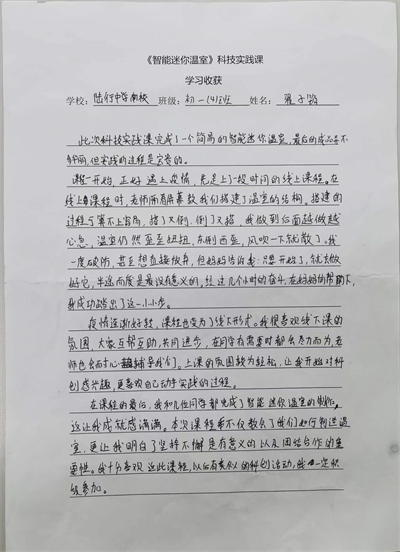 《智能迷你温室》科技实践课
学习收获
学校：陆行中学南校 班级：初一(4)班 姓名：
此次科技实践课完成了一个简易的智能迷你温室，最后的成品并不
鲜明，但实践的过程是宝贵的。
课程一开始，正好遇上疫情，先是上了一段时间的线上课程。在
线上课程时，老师面教我们搭建了温室的结构。搭建的
过程可算不上容易，搭了又倒，倒了又搭，我做到后面越做越
心急，温室仍然歪歪扭扭，东倒西歪，风吹一下就散了。我
一度破防，甚至想直接放弃，但妈妈告诉我：只要开始了，就去做
好它，半途而废是最没有意义的，经过几个小时的奋斗，在妈妈的帮助下，
成功踏出了这一小步。
疫情逐渐好转，课程也变为了线下形式。我很喜欢线下课的
氛围，大家互帮互助，共同进步，在同学有需要时都会尽力而为，老
师也会耐心辅导我们。上课的氛围较为轻松，让我开始对科
创感兴趣，更喜欢自己动手实践的过程。
在课程的最后，我和几位同学都完成了智能迷你温室的制作，
这让我成就感满满。本次课程不仅教会了我们如何制造温
室，更让我明白了坚持不懈是有意义的以及团结合作的重
要性。我十分喜欢这此课程，以后有类似的科创活动，我一定积
极参加。